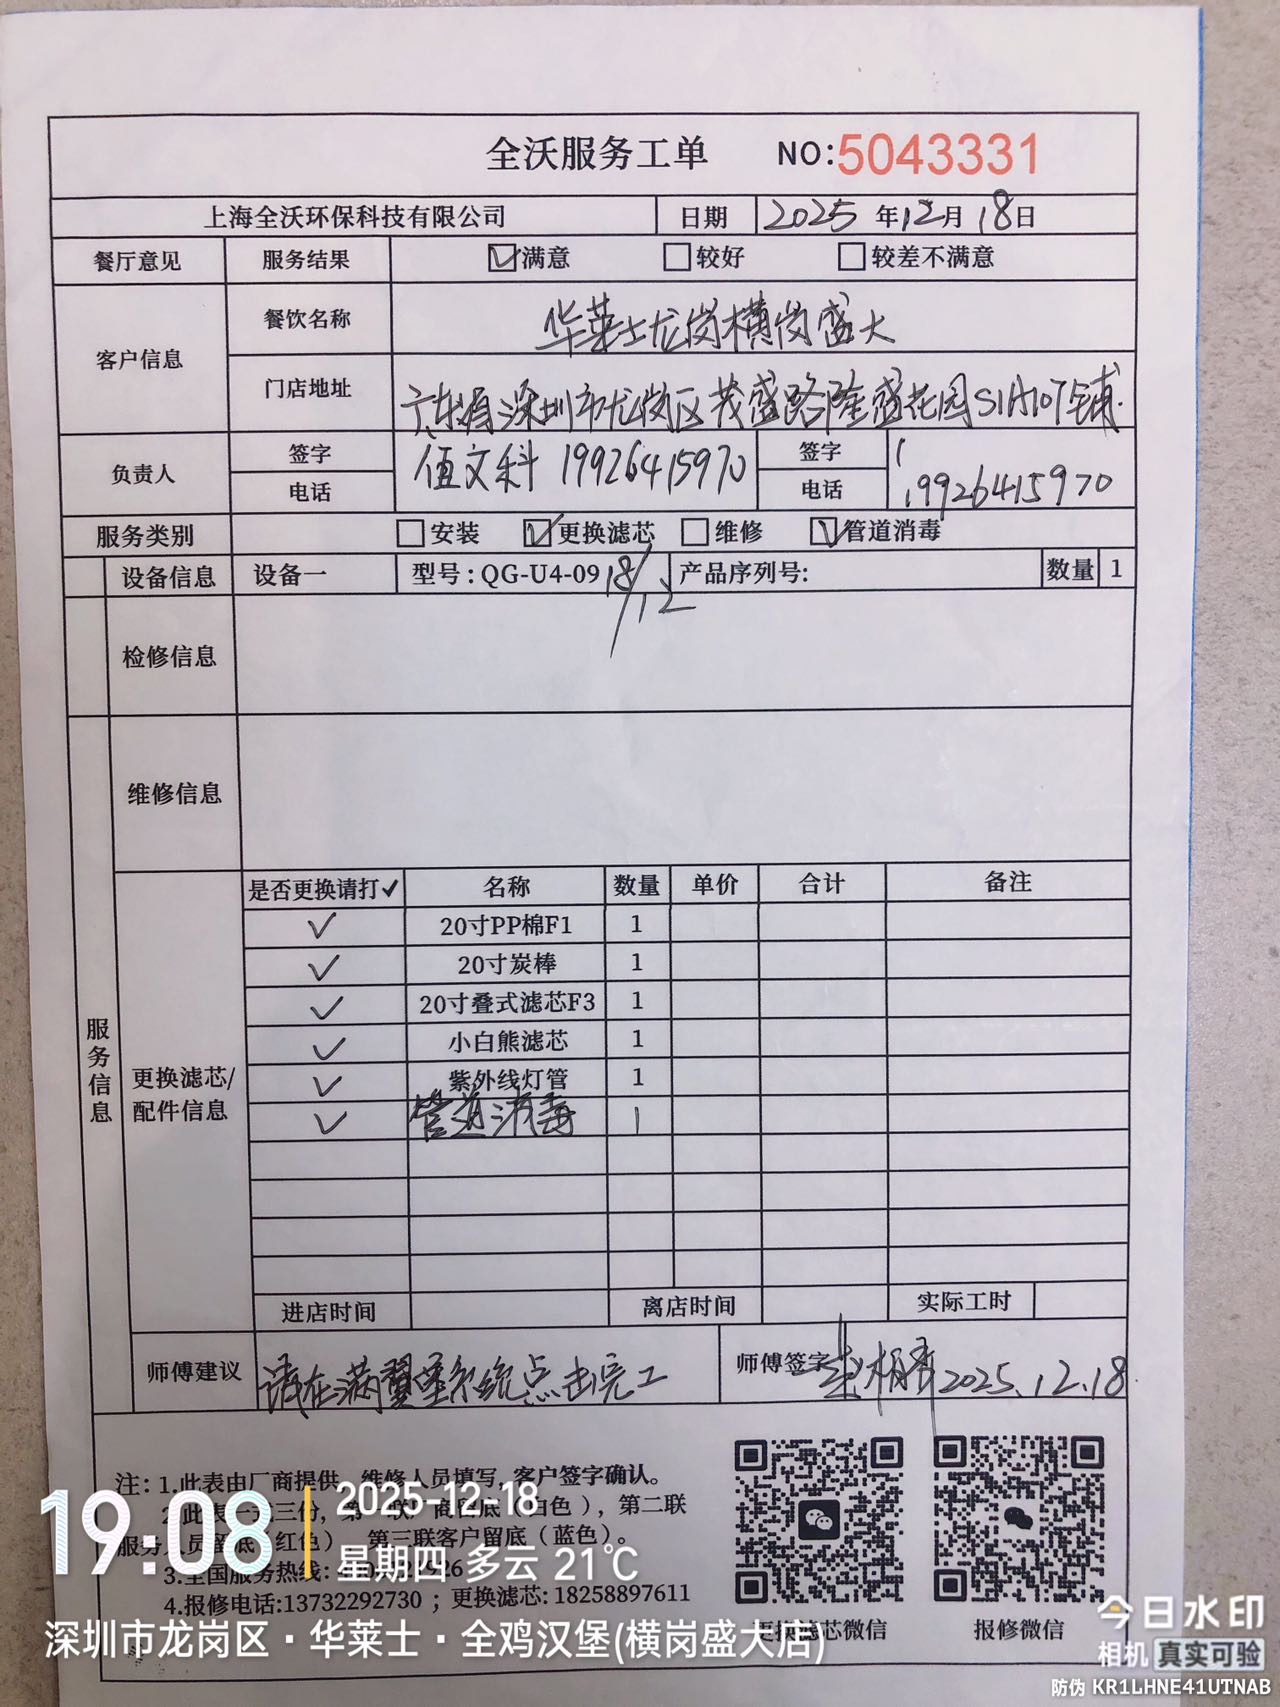 全沃服务工单 NO:5043331
上海全沃环保科技有限公司 日期 2025 年 12月 18日
餐厅意见 服务结果 ☑满意 □较好 □较差不满意
客户信息 餐饮名称 华莱士龙岗横岗盛大
门店地址 广东省深圳市龙岗区茂盛路隆盛花园S1A107铺
负责人 签字 电话 值文科 19926415970 签字 电话 19926415970
服务类别 □安装 ☑更换滤芯 □维修 ☑管道消毒
设备信息 设备一 型号:QG-U4-09 18/12 产品序列号: 数量 1
检修信息
维修信息
服务信息
更换滤芯/配件信息
是否更换请打✓ 名称 数量 单价 合计 备注
✓ 20寸PP棉F1 1
✓ 20寸炭棒 1
✓ 20寸叠式滤芯F3 1
✓ 小白熊滤芯 1
✓ 紫外线灯管 1
✓ 管道消毒 1
进店时间 离店时间 实际工时
师傅建议 请在满翼堡系统点击完工 师傅签字 2025.12.18
注: 1.此表由厂商提供，维修人员填写,客户签字确认。
2.此表一式三份，第一联厂商留底（白色），第二联
服务人员留底（红色），第三联客户留底（蓝色）。
3.全国服务热线:
4.报修电话:13732292730 ；更换滤芯: 18258897611
更换滤芯微信 报修微信
19:08
2025-12-18
星期四 多云 21℃
深圳市龙岗区·华莱士·全鸡汉堡(横岗盛大店)
今日水印
相机 真实可验
防伪 KR1LHNE41UTNAB